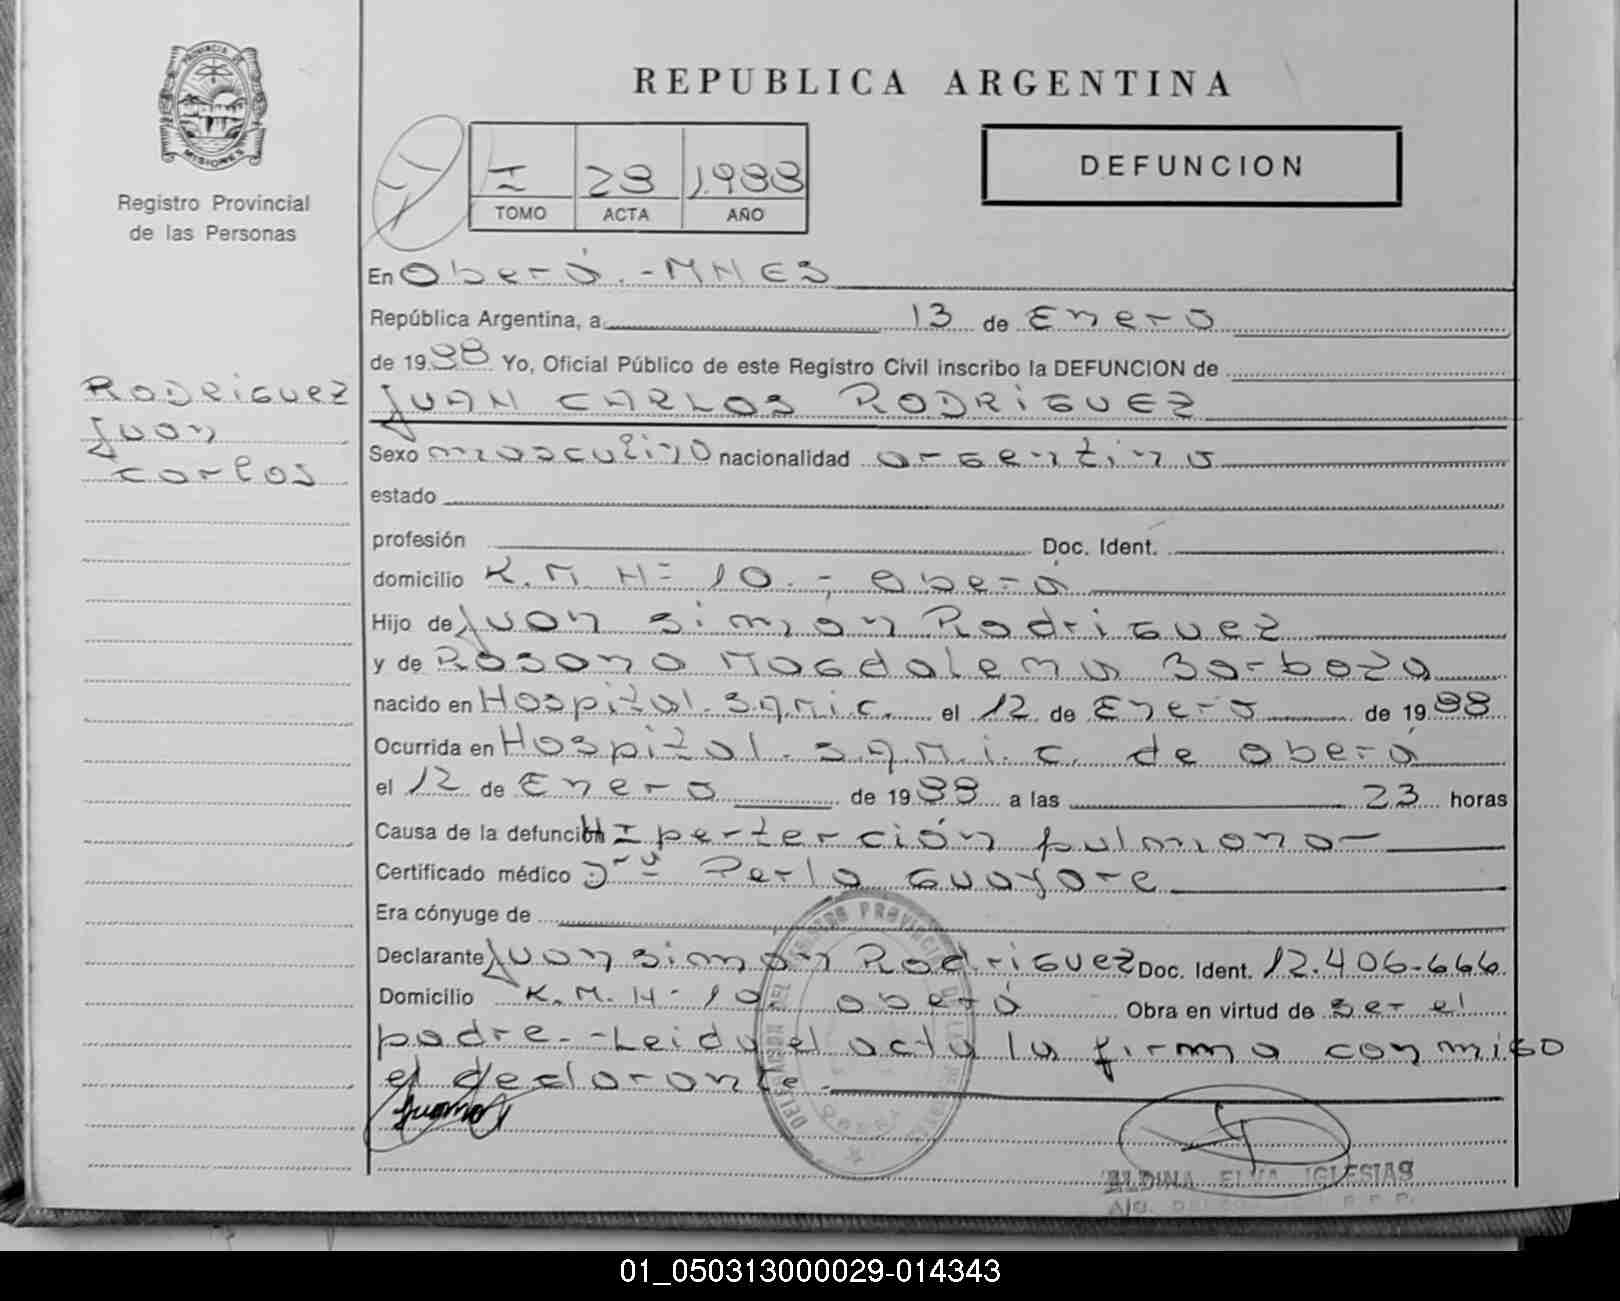 PROVINCIA DE
MISIONES
Registro Provincial
de las Personas
REPUBLICA ARGENTINA
DEFUNCION
I 28 1988
TOMO ACTA AÑO
En Oberá.-MNES
República Argentina, a 13 de Enero
de 1988 Yo, Oficial Público de este Registro Civil inscribo la DEFUNCION de
JUAN CARLOS RODRIGUEZ
RODRIGUEZ
Juan
Carlos
Sexo masculino nacionalidad argentino
estado
profesión Doc. Ident.
domicilio K.M. Nº 10.- Oberá
Hijo de Juan Simón Rodriguez
y de Rosana Magdalena Barboza
nacido en Hospital S.A.M.I.C. el 12 de Enero de 1988
Ocurrida en Hospital S.A.M.I.C. de Oberá
el 12 de Enero de 1988 a las 23 horas
Causa de la defunción Hiperterción pulmonar
Certificado médico Drª Perla Guayare
Era cónyuge de
Declarante Juan Simón Rodriguez Doc. Ident. 12.406.666
Domicilio K.M. Nº 10. Oberá Obra en virtud de ser el
padre.-Leida el acta la firma conmigo
el declarante.
ALDINA ELVA IGLESIAS
01_050313000029-014343